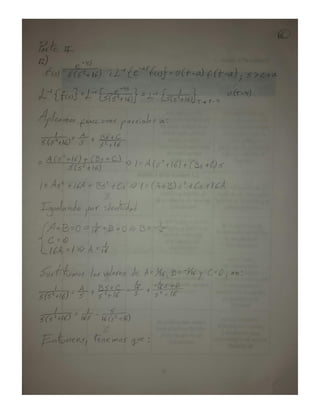 Parte II
12)
F(s) = e^{-4s}/(s(s²+16)) ; L⁻¹{e^{-as} F(s)} = U(t-a) f(t-a) ; s > c > a
L⁻¹{F(s)} = L⁻¹{e^{-4s}/(s(s²+16))} = L⁻¹{1/(s(s²+16))} t→t-4 U(t-4)
Aplicamos fracciones parciales a:
1/(s(s²+16)) = A/s + (Bs+C)/(s²+16)
= (A(s²+16)+(Bs+C)s)/(s(s²+16)) ⇒ 1 = A(s²+16)+(Bs+C)s
1 = As²+16A+Bs²+Cs ⇒ 1 = (A+B)s²+Cs+16A
Igualando por identidad
A+B=0 ⇒ 1/16+B=0 ⇒ B=-1/16
C=0
16A=1 ⇒ A=1/16
Sustituimos los valores de A=1/16, B=-1/16 y C=0, en:
1/(s(s²+16)) = A/s + (Bs+C)/(s²+16) = (1/16)/s + (-1/16 s+0)/(s²+16)
1/(s(s²+16)) = 1/(16s) - s/(16(s²+16))
Entonces, tenemos que: